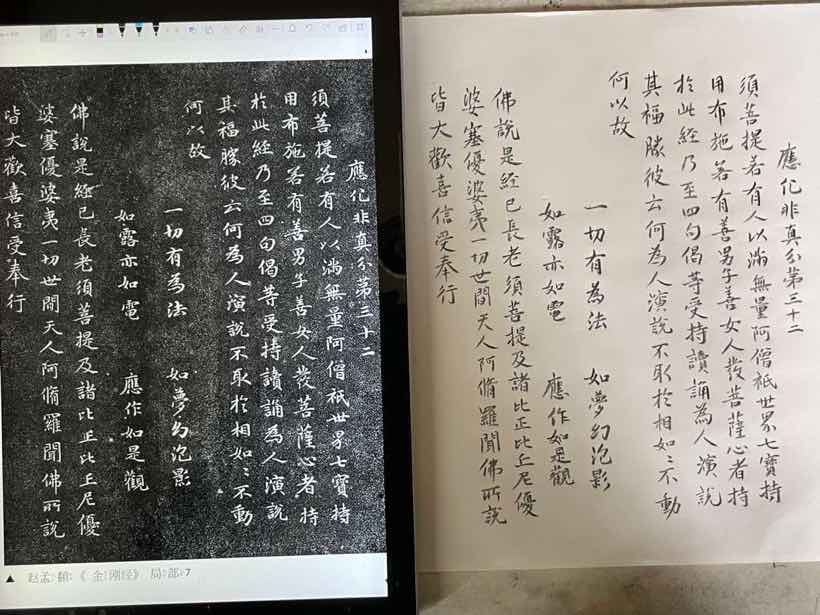 應化非真分第三十二
須菩提若有人以滿無量阿僧祇世界七寶持
用布施若有善男子善女人發菩薩心者持
於此經乃至四句偈等受持讀誦為人演說
其福勝彼云何為人演說不取於相如〻不動
何以故
一切有為法 如夢幻泡影
如露亦如電 應作如是觀
佛說是經已長老須菩提及諸比丘比丘尼優
婆塞優婆夷一切世間天人阿脩羅聞佛所說
皆大歡喜信受奉行
▲ 赵孟頫《金刚经》局部7
應化非真分第三十二
須菩提若有人以滿無量阿僧祇世界七寶持
用布施若有善男子善女人發菩薩心者持
於此經乃至四句偈等受持讀誦為人演說
其福勝彼云何為人演說不取於相如〻不動
何以故
一切有為法 如夢幻泡影
如露亦如電 應作如是觀
佛說是經已長老須菩提及諸比丘比丘尼優
婆塞優婆夷一切世間天人阿脩羅聞佛所說
皆大歡喜信受奉行